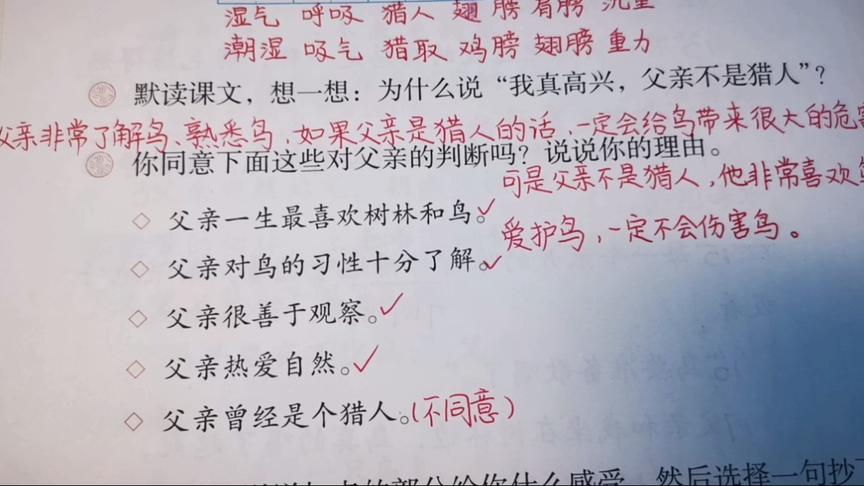 湿气 呼吸 猎人 翅膀 肩膀 沉重
潮湿 吸气 猎取 鸡膀 翅膀 重力
默读课文，想一想：为什么说“我真高兴，父亲不是猎人”？
父亲非常了解鸟、熟悉鸟，如果父亲是猎人的话，一定会给鸟带来很大的危害
你同意下面这些对父亲的判断吗？说说你的理由。
可是父亲不是猎人，他非常喜欢
◇ 父亲一生最喜欢树林和鸟。✓
爱护鸟，一定不会伤害鸟。
◇ 父亲对鸟的习性十分了解。✓
◇ 父亲很善于观察。✓
◇ 父亲热爱自然。✓
◇ 父亲曾经是个猎人。（不同意）
的部分给你什么感受，然后选择一句抄